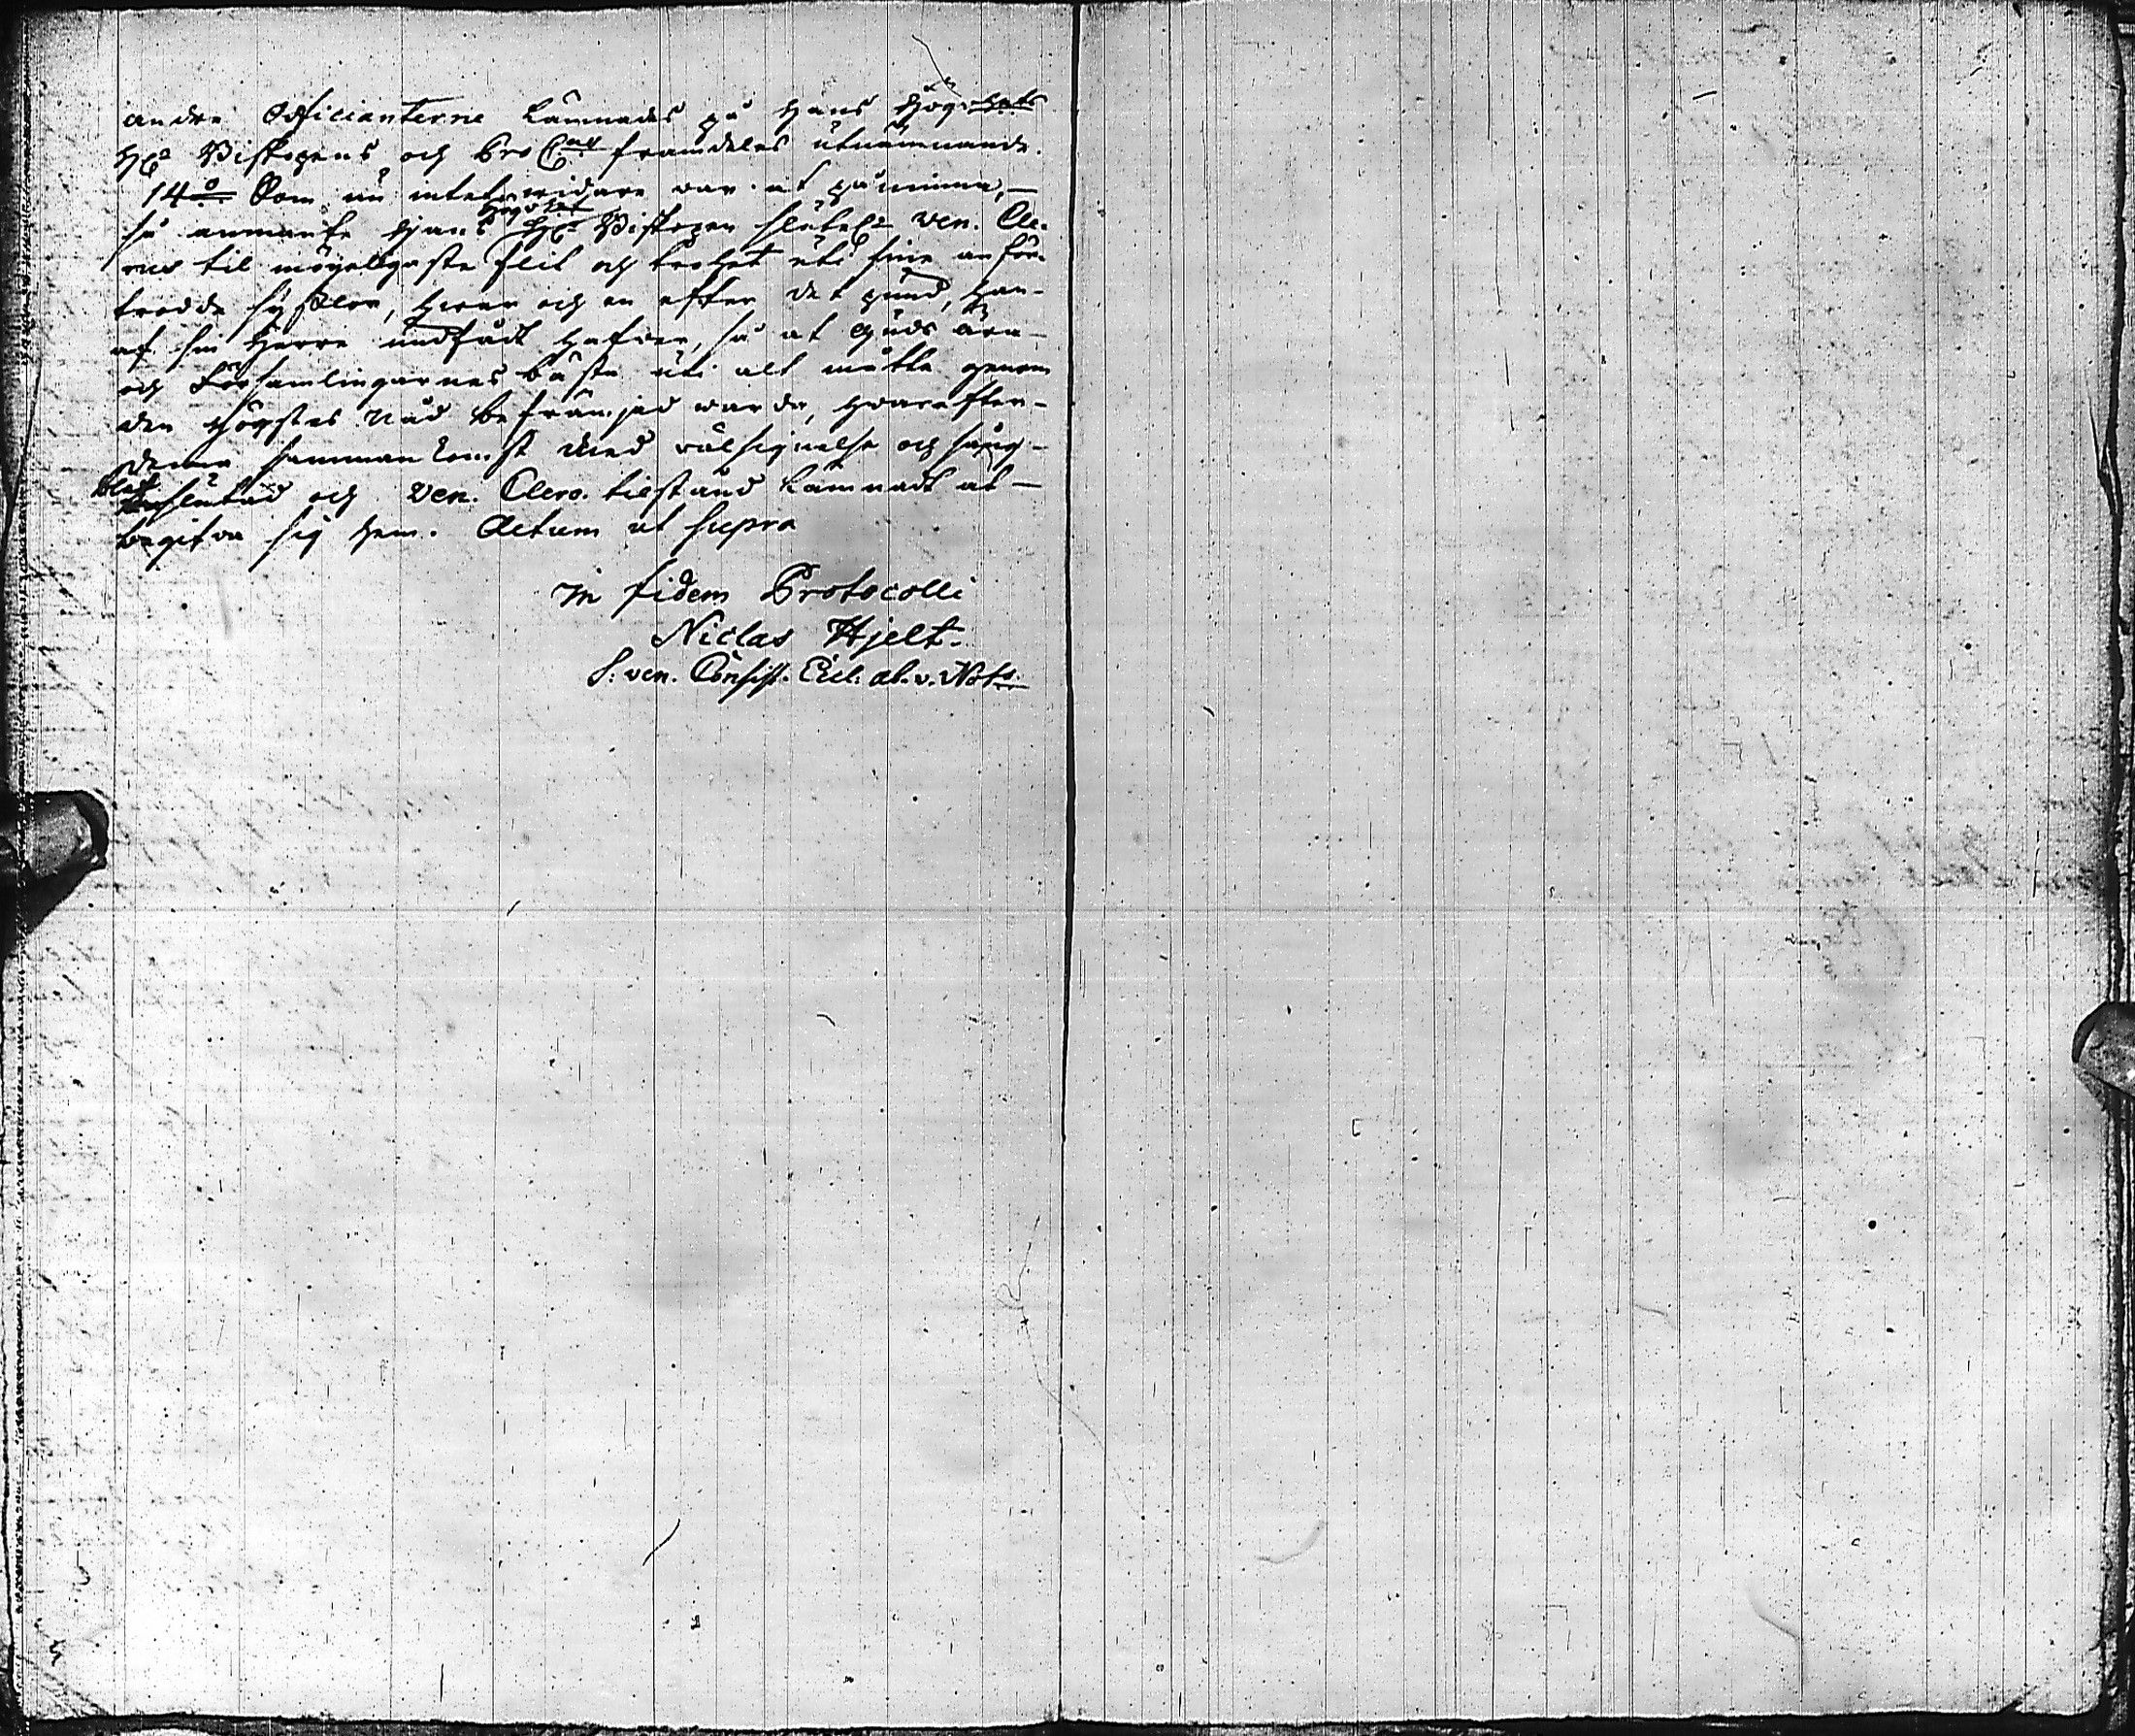 andre Officianterne lämnades på Hans Högv:hets
H:r Biskopens och framdeles utnämnande.
14:o Som nu intet widare war at påminna, —
så anmante Hans Högv:het H:r Biskopen sluteln Ven. Cle-
rus til möyeligaste flit och trohet uti sine anför-
trodde sysslor, hwar och en efter det pund, han -
af sin Herre undfådt hafwer, så at Guds ära -
och Församlingarnes bästa uti alt måtte genom
den Högstes nåd befrämjad warda, hwarefter -
denna sammankomst med wälsignelse och sång -
blef beslutad och Ven. Clero. tilstånd lämnadt at —
begifwa sig hem. Actum ut supra
In fidem Protocolli
Niclas Hjelt.
S: ven. Consist. Eccl: ab. v. Not:s